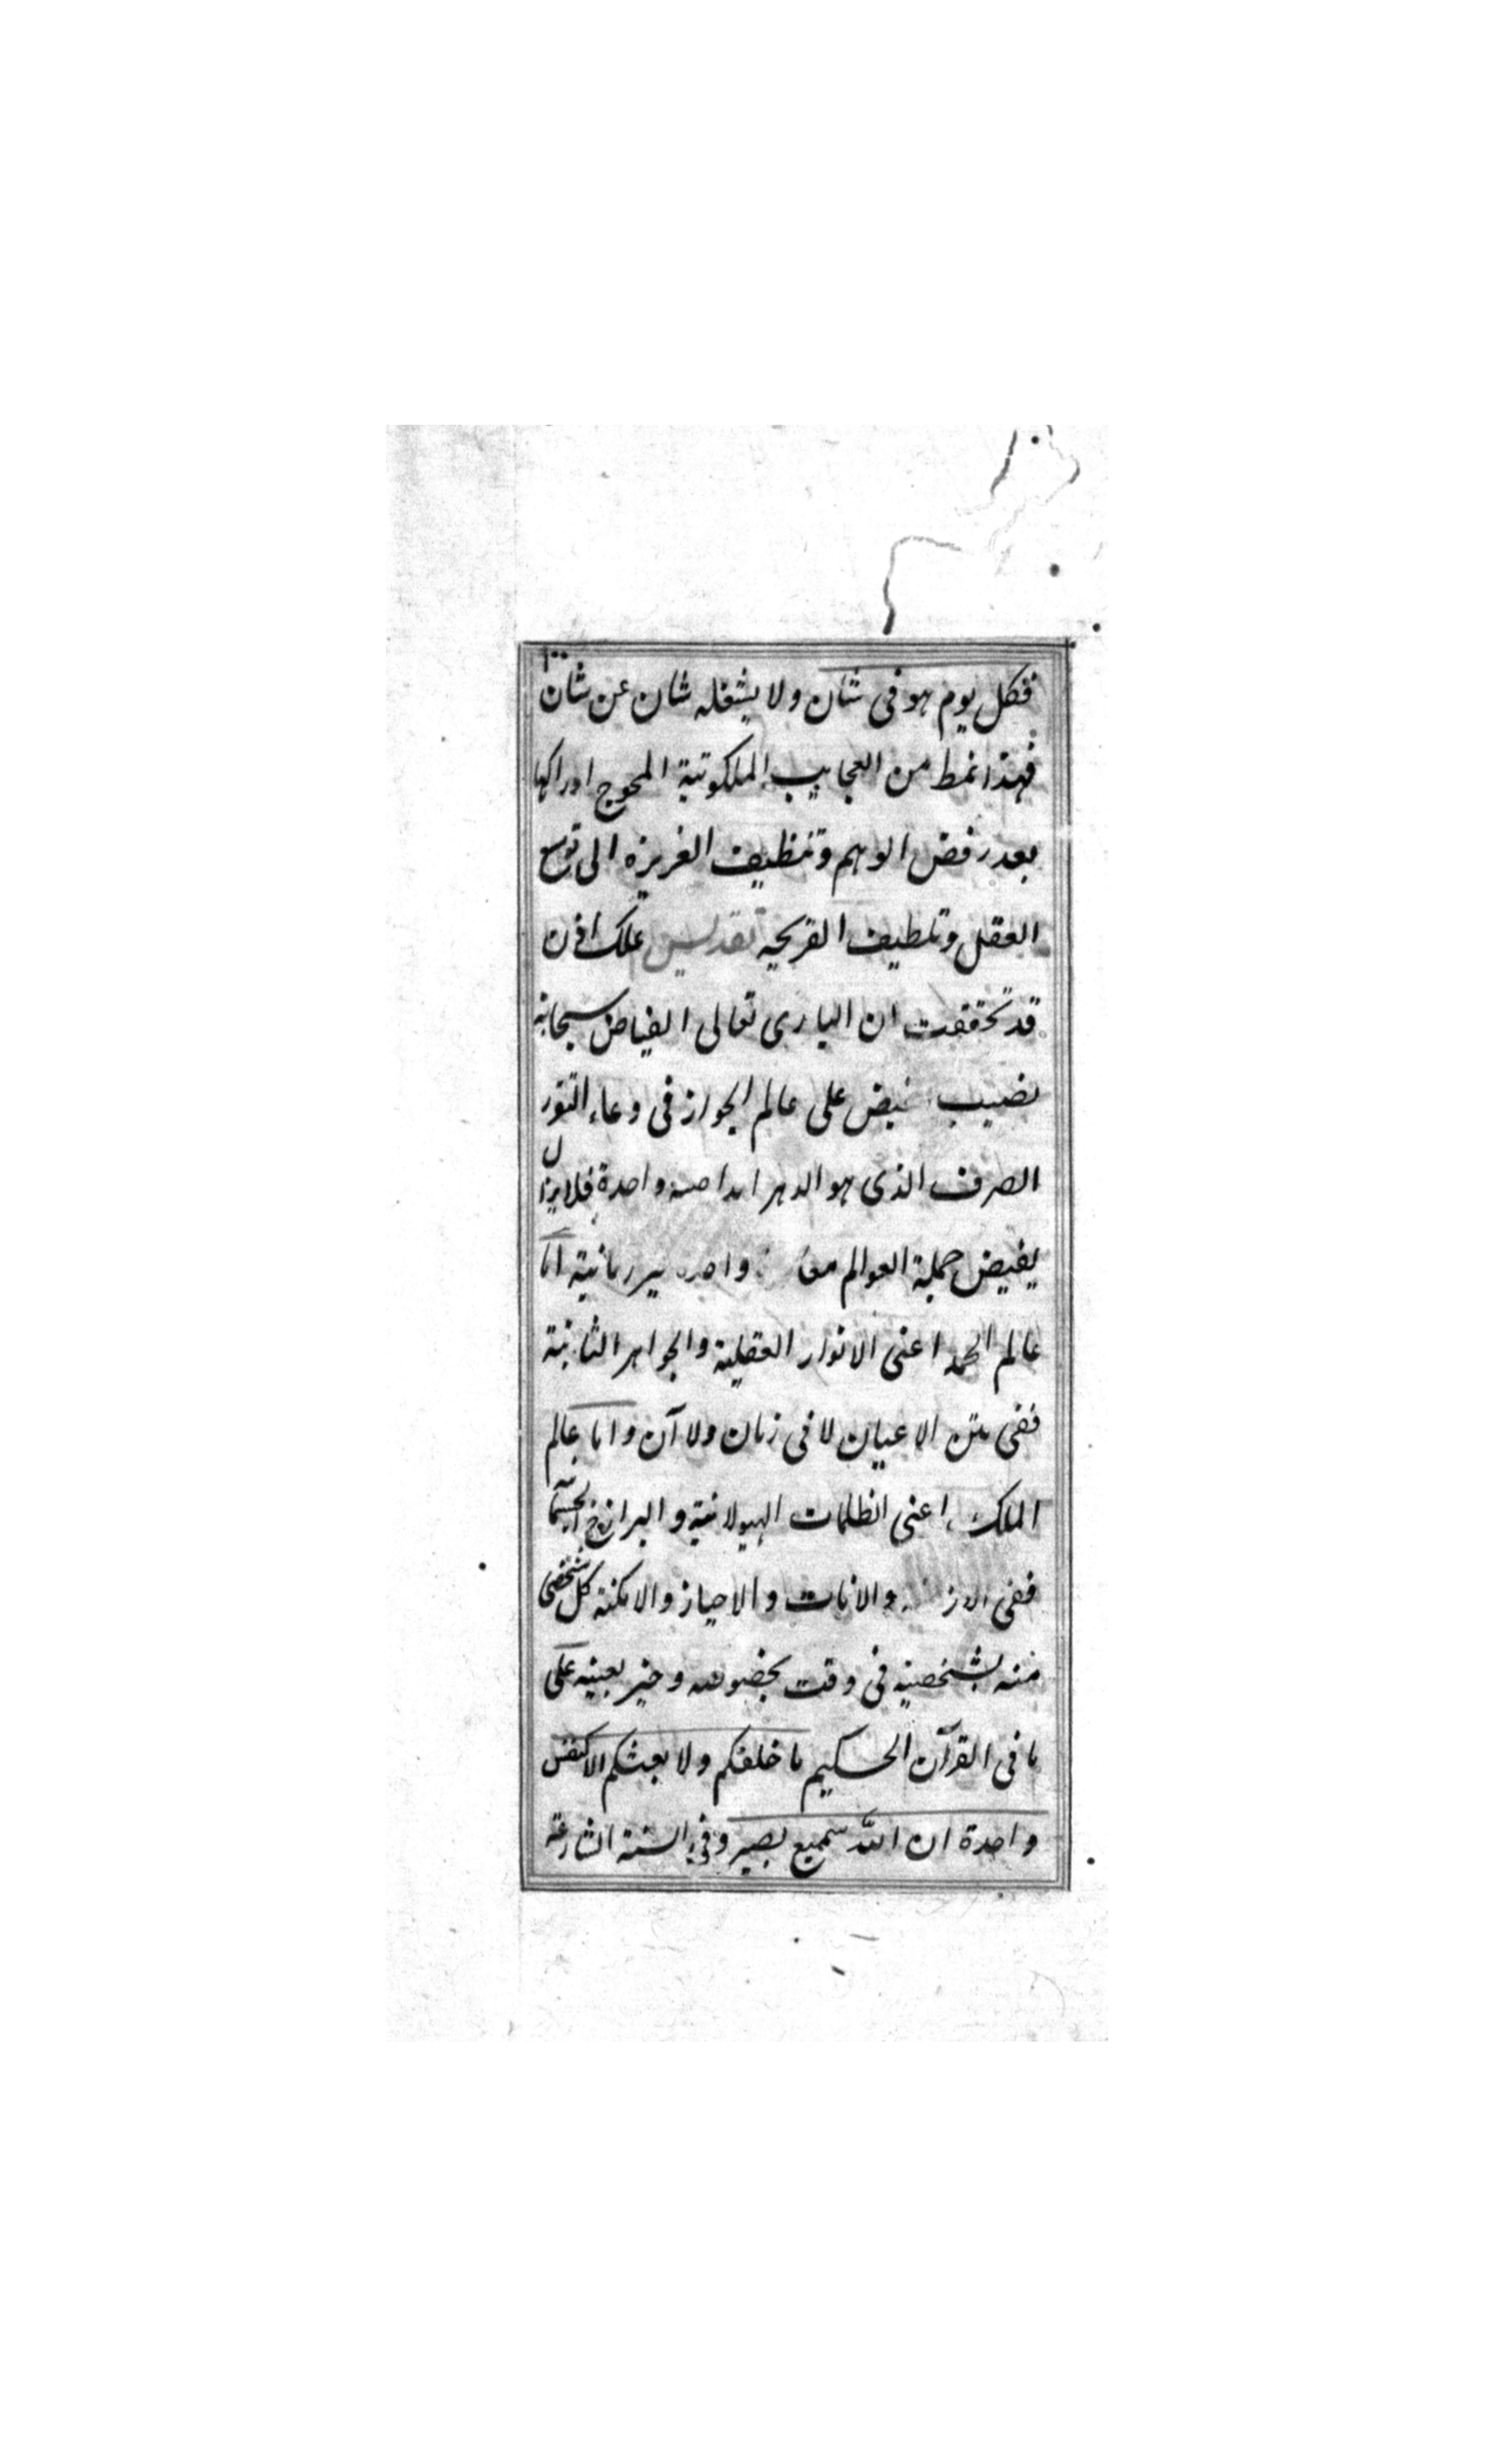 فكل يوم هو فى شان ولا يشغله شان عن شان
فهذا نمط من العجايب الملكوتية المحوج ادراكها
بعد رفض الوهم وتنظيف الغريزه الى توسع
العقل وتلطيف القريحه تقديس علك اذن
قد تحققت ان البارى تعالى الفياض سبحانه
فيض على عالم الجواز فى وعاء
الصرف الذى هو الدهر ابدا واحدة فلا يزال
يفيض جملة العوالم واحده اما
عالم الحمد اعنى الانوار العقلية والجواهر الثابتة
ففى متن الاعيان لا فى زمان ولا آن واما عالم
الملك اعنى الظلمات الهيولانية والبرازخ الجسمانية
ففى والانات والاحياز والامكنة كل شخصى
منه بشخصيته فى وقت بخصوصه وحيز بعينه على
ما فى القرآن الحكيم ما خلقكم ولا بعثكم الا كنفس
واحدة ان الله سميع بصير وفى السنة الشارعة